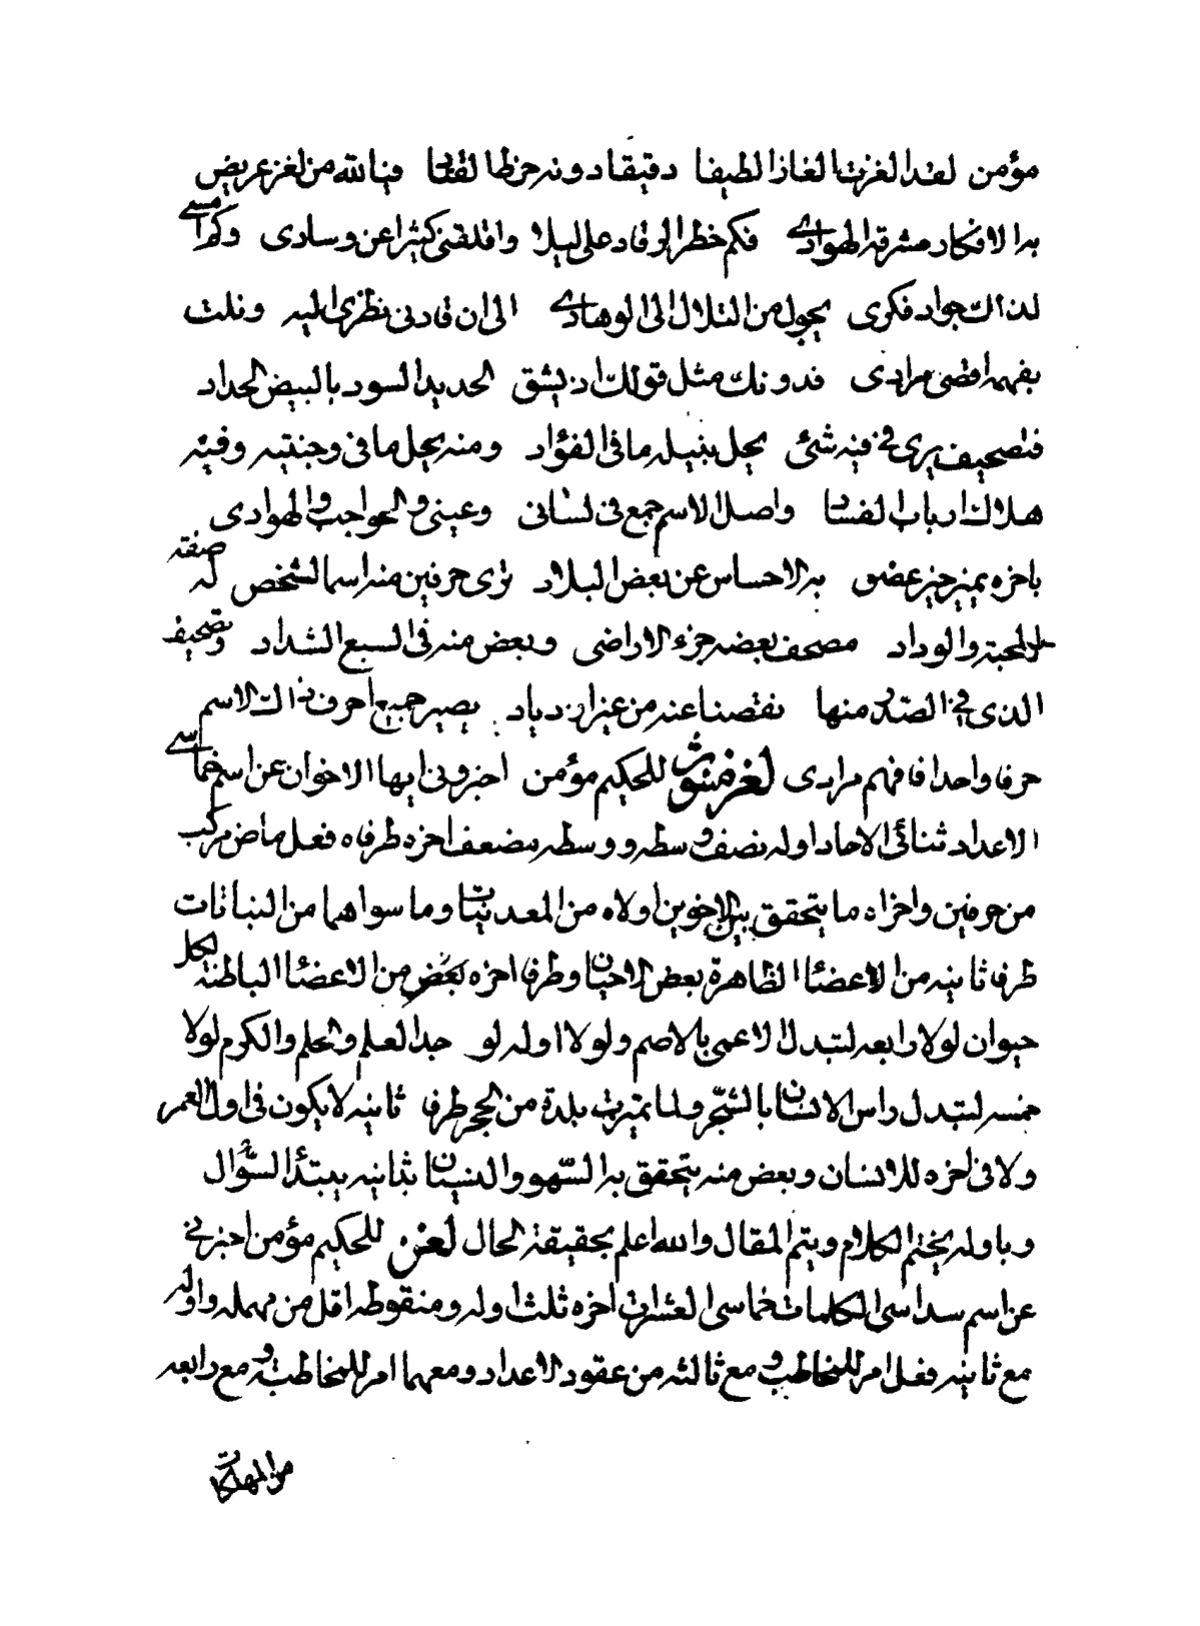 مؤمن لقد الغزت الغازا لطيفا دقيقا دونه خرط القتاد فيا لله من لغز عريض
به الافكار مشرقة الهوادي فكم خطر الرقاد على ليلا واقلقني كثيرا عن وسادى وكم امسى
لذاك جواد فكرى يجول من التلال الى الوهادى الى ان قادنى نظرى اليه ونلت
بفهمه اقصى مرادى فدونك مثل قولك اذ يشق الحديد السود بالبيض الحداد
فتصحيف يرى في فيه شئ يحل بنيله ما فى الفؤاد ومنه يحل ما فى وجنتيه وفيه
هلاك ارباب الفساد واصل الاسم جمع فى لسانى وعينى والحواجب والهوادى
باخره يميز خير عضو به الاحساس عن بعض البلاد ترى حرفين منه اسما لشخص له صفة
المحبة والوداد مصحف بعضه جزء الاراضى وبعض منه فى السبع الشداد وتصحيف
الذى في الصدر منها نقصنا عنه من غير ازدياد يصير جميع احرف ذاك الاسم
حرفا واحدا فافهم مرادى لغز منثور للحكيم مؤمن اخبرونى ايها الاخوان عن اسم خماسى
الاعداد ثنائى الاحاد اوله نصف وسطه ووسطه مضعف اخره طرفاه فعل ماض مركب
من حرفين واخراه ما يتحقق بين الاخوين اولاه من المعدنيات وما سواهما من النباتات
طرفا ثانيه من الاعضاء الظاهرة بعض الاحيان وطرفا اخره بعض من الاعضاء الباطنة لكل
حيوان لولا رابعه لتبدل الاعمى بالاصم ولولا اوله لو جد العلم والحلم والكرم لولا
خمسه لتبدل راس الانسان بالشجر ولما تميزت بلدة من الحجر طرفا ثانيه لا يكون فى اول العمر
ولا فى اخره للانسان وبعض منه يتحقق به السهو والنسيان بثانيه يبتدأ السؤال
وباوله يختم الكلام ويتم المقال والله اعلم بحقيقة الحال لغز للحكيم مؤمن اخبرني
عن اسم سداسى الكلمات خماسى العشرات اخره ثلث اوله ومنقوطه اقل من مهمله واوله
مع ثانيه فعل امر للمخاطب ومع ثالثه من عقود الاعداد ومعهما امر للمخاطب ومع رابعه
من المهلكات